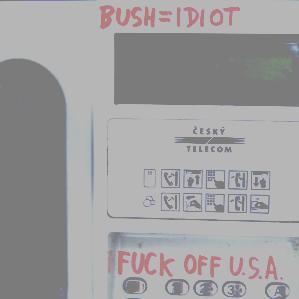 BUSH=IDIOT
ČESKÝ
TELECOM
FUCK OFF U.S.A.
1 2 3 A